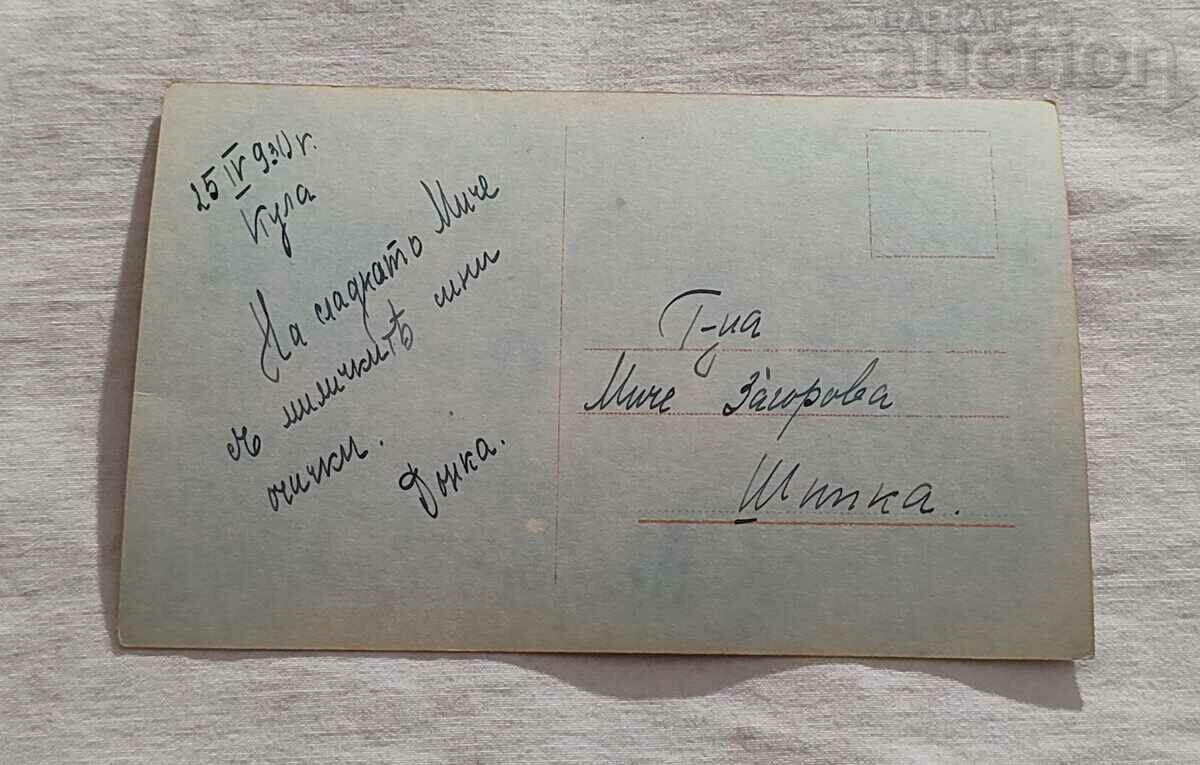 BALKAN
auction
25 IV 930 г.
Кула
На сладката Миче
съ миличкитѣ мни
очички.
Донка.
Г-ца
Миче Загорова
Шипка.